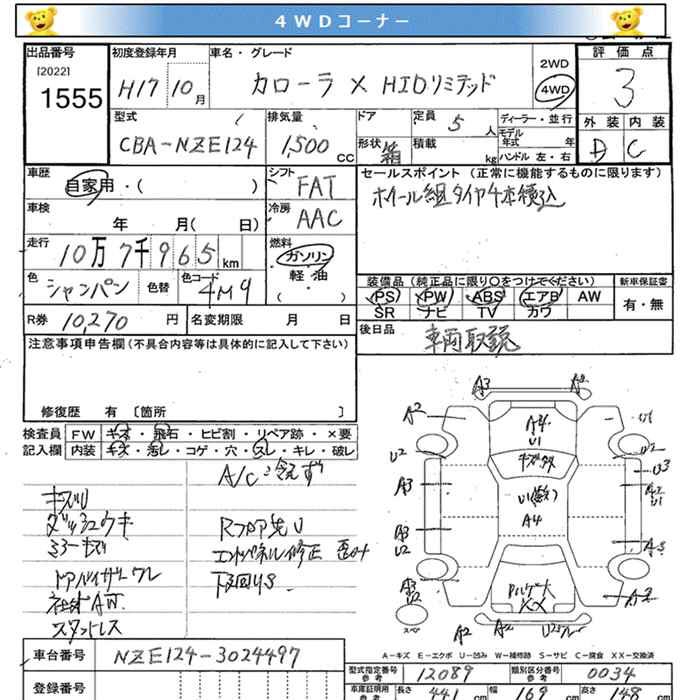 4WDコーナー
出品番号 初度登録年月 車名・グレード 2WD 4WD 評価点
[2022] 1555 H17 10月 カローラ X HIDリミテッド 3
型式 排気量 ドア 定員 5人 ディーラー・並行 外装 内装
CBA-NZE124 1,500cc 形状 箱 積載 kg モデル年式 年 D C
ハンドル 左・右
車歴 シフト セールスポイント (正常に機能するものに限ります)
自家用・( ) FAT ホイール組タイヤ4本積込
車検 冷房
年 月( 日) AAC
走行 燃料
10万7千965km ガソリン
色 色替 色コード 軽・油
シャンパン 4M9 ( ・ )
装備品 (純正品に限り○をつけてください) 新車保証書
PS PW ABS エアB AW 有・無
SR ナビ TV カワ
R券 10,270 円 名変期限 月 日 後日品 車両取説
注意事項申告欄(不具合内容等は具体的に記入して下さい)
修復歴 有 〔箇所 〕
検査員 FW キズ・飛石・ヒビ割・リペア跡・×要
記入欄 内装 キズ・汚レ・コゲ・穴・スレ・キレ・破レ
A/C:冷えず
キズU
ダッシュウキ
ミラーキズ
ドアバイザーワレ
社外AW.
スタッドレス
コアパネル修正 歪み
下回りS
A3
A2
U2
A3
A3
U2
A4
U1
A4
XX
U2
U3
A2
U1
A2
A2
スペア
A-キズ E-エクボ U-凹み W-補修跡 S-サビ C-腐食 XX-交換済
車台番号 NZE124-3024497
登録番号
型式指定番号 参考 12089 類別区分番号 参考 0034
車庫証明用 参考 長さ 441cm 幅 169cm 高さ 148cm